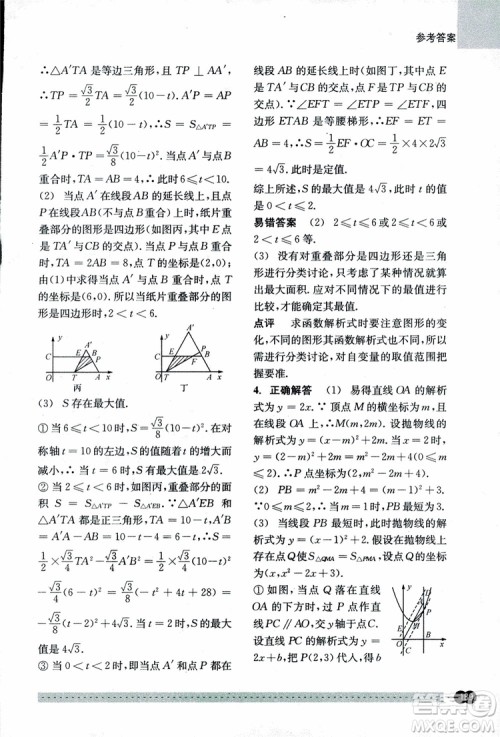 参考答案
∴△A′TA 是等边三角形，且 TP⊥AA′，
∴TP=√3/2 TA=√3/2(10-t)，A′P=AP=
1/2 TA=1/2(10-t)，∴S=S△A′TP=
1/2 A′P·TP=√3/8(10-t)²．当点 A′与点 B
重合时，AT=2AB=8，∴此时点 T 的坐标
是(2,0)．
(2) 当点 A′在线段 AB 的延长线上，且点
P 在线段 AB(不与点 B 重合)上时，纸片重
叠部分的图形是四边形(如图丙，其中点 E
是 TA′与 CB 的交点)．当点 P 与点 B 重合
时，AT=2AB=8，此时点 T 的坐标是(2,0)；
由(1)中求得当点 A′与点 B 重合时，点 T
的坐标是(6,0)，则当纸片重叠部分的图
形是四边形时，2<t<6．
y
A′
C
E
B
P
O
T
A
x
丙
y
A′
P
C
E
F
B
O
T
A
x
丁
(3) S 存在最大值．
①当 6≤t<10 时，S=√3/8(10-t)²．在对
称轴 t=10 的左边，S 的值随着 t 的增大而
减小，∴当 t=6 时，S 的值最大是 2√3．
②当 2≤t<6 时，如图丙，重叠部分的面
积 S=S△A′TP-S△A′EB，∵△A′EB 和
△A′TA 都是正三角形，A′T=10-t，∴S=
1/2×√3/4 TA²-√3/4 A′B²=1/2×√3/4(10-t)²
-√3/4(6-t)²=√3/8(-t²+4t+28)=
-√3/8(t-2)²+4√3．∴当 t=2 时，S 的值
最大是 4√3．
③当 0<t<2，即当点 A′和点 P 都在
线段 AB 的延长线上时(如图丁，其中点 E
是 TA′与 CB 的交点，点 F 是 TP 与 CB 的
交点)．∵∠EFT=∠PTF=∠ETF，四
边形 ETAB 是等腰梯形，∴EF=ET=
AB=4，∴S=1/2 EF·OC=1/2×4×2√3
=4√3．此时 S 是定值．
综上所述，S 的最大值是 4√3，此时 t 的值
是 0<t≤2．
易错答案 (2) 2≤t≤6 或 2<t≤6 或
2≤t<6
(3) 没有考虑重叠图形是四边形还是三角
形的最大面积．应对不同情况下的最值进
行比较，才能求得最大值．
点评 求函数解析式时要注意图形的变
化，不同的图形其面积的表达式不同，所以
需要进行分类讨论，自变量的取值范围要
把握准．
4. 正确解答 (1) 易得直线 OA 的解析
式为 y=2x．∵顶点 M 的横坐标为 m，且在
线段 OA 上，∴M(m，2m)．设抛物线的解
析式为 y=(x-m)²+2m．当 x=2 时，y=
(2-m)²+2m=m²-2m+4(0≤m≤2)．
(2) PB=m²-2m+4=(m-1)²+3．∵
0≤m≤2，∴当 m=1 时，PB 最短．
(3) 当线段 PB 最短时，此时抛物线的解
析式为 y=(x-1)²+2．假设在抛物线上存
在点 Q 使 S△QMA=S△PMA，设点 Q 的坐标为
(x，x²-2x+3)．
①如图，当点 Q 落在直线
OA 的下方时，过 P 作直线
PC∥AO，交 y 轴于点 C．
设直线 PC 的解析式为 y=
2x+b，将 P(2,3)代入，得